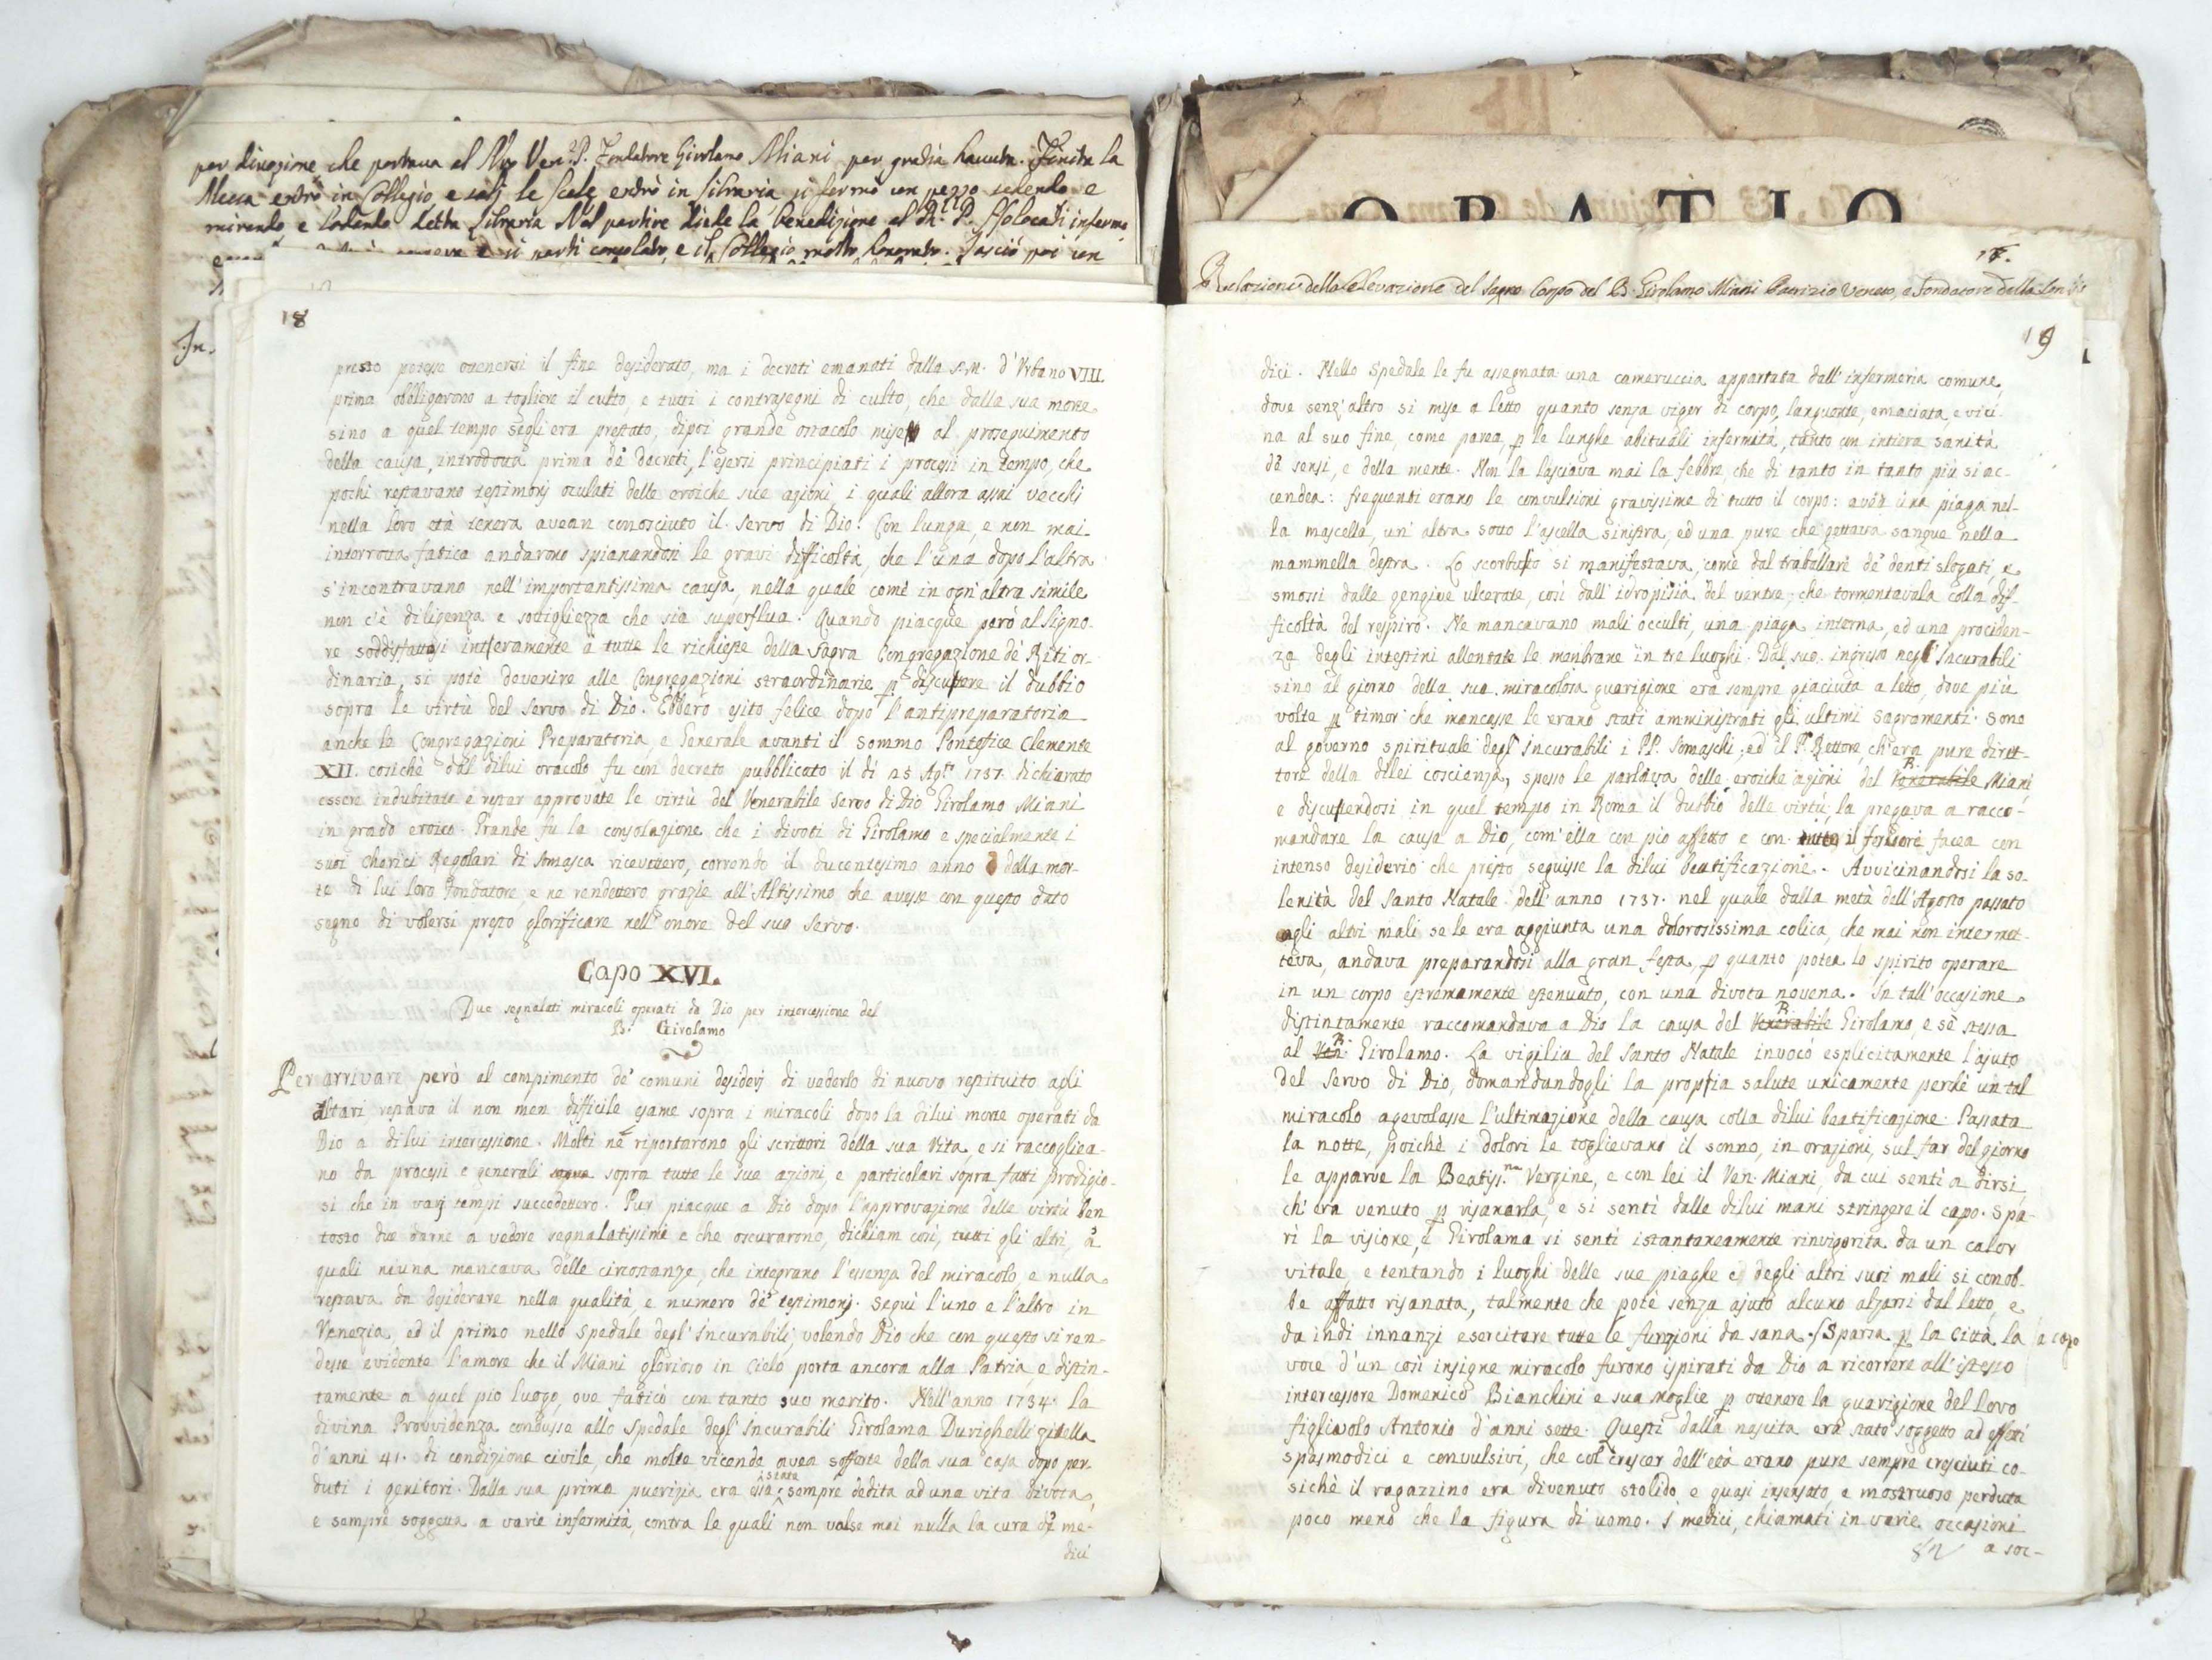 per divozione che portava al Nro Ven. P. Fondatore Girolamo Miani per gratia havuta. Finita la
Messa entrò in Collegio, e salì le scale entrò in libraria si fermò un pezzo sedendo e
mirando e lodando detta libraria Nel partire diede la benedizione al infermo
si partì consolato, e il Collegio molto honorato. Lasciò poi un
In.
18
presto potesse ottenersi il fine desiderato, ma i decreti emanati dalla s. m. d'Urbano VIII
prima obbligarono a togliere il culto, e tutti i contrasegni di culto, che dalla sua morte
sino a quel tempo segli era prestato, dipoi grande ostacolo mise al proseguimento
della causa, introdotta prima de' decreti, l'essersi principiati i processi in tempo, che
pochi restavano testimonj oculati delle eroiche sue azioni, i quali allora assai vecchi
nella loro età tenera avean conosciuto il Servo di Dio. Con lunga, e non mai
interrotta fatica andarono spianandosi le gravi difficoltà, che l'una dopo l'altra
s'incontravano nell'importantissima causa, nella quale come in ogn'altra simile
non c'è diligenza e sottigliezza che sia superflua. Quando piacque però al Signo-
re soddisfattosi interamente a tutte le richieste della Sagra Congregazione de' Riti or-
dinaria, si potè devenire alle Congregazioni straordinarie p discutere il dubbio
sopra le virtù del Servo di Dio. Ebbero esito felice dopo l'antipreparatoria
anche le Congregazioni Preparatoria, e Generale avanti il Sommo Pontefice Clemente
XII. cosichè dal dilui oracolo fu con decreto pubblicato il dì 25 Agto 1737. dichiarato
essere indubitate e restar approvate le virtù del Venerabile Servo di Dio Girolamo Miani
in grado eroico. Grande fu la consolazione che i divoti di Girolamo e specialmente i
suoi Cherici Regolari di Somasca ricevettero, correndo il ducentesimo anno della mor-
te di lui loro Fondatore, e ne rendettero grazie all'Altissimo che avesse con questo dato
segno di volersi presto glorificare nell'onore del suo Servo.
Capo XVI.
Due segnalati miracoli operati da Dio per intercessione del
B. Girolamo
Per arrivare però al compimento de' comuni desiderj di vederlo di nuovo restituito agli
altari restava il non men difficile esame sopra i miracoli dopo la dilui morte operati da
Dio a dilui intercessione. Molti ne riportarono gli scrittori della sua Vita, e si raccogliea-
no da processi e generali sopra tutte le sue azioni, e particolari sopra fatti prodigio-
si che in varj tempi succedettero. Pur piacque a Dio dopo l'approvazione delle virtù ben
tosto due darne a vedere segnalatissimi e che oscurarono, dichiam così, tutti gli altri, a'
quali niuna mancava delle circostanze, che integrano l'essenza del miracolo, e nulla
restava da desiderare nella qualità, e numero de' testimonj. Seguì l'uno e l'altro in
Venezia, ed il primo nello Spedale degl'Incurabili, volendo Dio che con questo si ren-
desse evidente l'amore che il Miani glorioso in Cielo porta ancora alla Patria, e distin-
tamente a quel pio luogo, ove faticò con tanto suo merito. Nell'anno 1734. la
divina Provvidenza condusse allo Spedale degl'Incurabili Girolama Durighelli zitella
d'anni 41. di condizione civile, che molte vicende avea sofferte della sua casa dopo per-
duti i genitori. Dalla sua prima puerizia era ella stata sempre dedita ad una vita divota,
e sempre soggetta a varie infermità, contra le quali non valse mai nulla la cura de' me-
dici
ORATIO
18.
Relazione della Elevazione del Sagro Corpo del B. Girolamo Miani Patrizio Veneto, e Fondatore della
19
dici. Nello Spedale le fu assegnata una cameruccia appartata dall'infermeria comune,
dove senz'altro si mise a letto quanto senza vigor di corpo, languente, emaciata, e vici-
na al suo fine, come parea, p le lunghe abituali infermità, tanto con intiera sanità
de' sensi, e della mente. Non la lasciava mai la febbre, che di tanto in tanto più si ac-
cendea: frequenti erano le convulsioni gravissime di tutto il corpo: avea una piaga nel-
la mascella, un'altra sotto l'ascella sinistra, ed una pure che gettava sangue nella
mammella destra. Lo scorbuto si manifestava, come dal traballare de' denti slogati, e
smossi dalle gengive ulcerate, così dall'idropisia del ventre, che tormentavala colla dif-
ficoltà del respiro. Ne mancavano mali occulti, una piaga interna, ed una prociden-
za degli intestini allentate le membrane in tre luoghi. Dal suo ingresso negl'Incurabili
sino al giorno della sua miracolosa guarigione era sempre giaciuta a letto, dove più
volte p timor che mancasse le erano stati amministrati gli ultimi Sagramenti. Sono
al governo spirituale degl'Incurabili i PP. Somaschi, ed il P. Rettore, ch'era pure diret-
tore della dilei coscienza, spesso le parlava delle eroiche azioni del Venerabile B. Miani
e discutendosi in quel tempo in Roma il dubbio delle virtù, la pregava a racco-
mandare la causa a Dio, com'ella con pio affetto e con tutto il fervore facea con
intenso desiderio che presto seguisse la dilui beatificazione. Avvicinandosi la so-
lenità del Santo Natale dell'anno 1737. nel quale dalla metà dell'Agosto passato
agli altri mali se le era aggiunta una dolorosissima colica, che mai non intermet-
teva, andava preparandosi alla gran festa, p quanto potea lo spirito operare
in un corpo estremamente estenuato, con una divota novena. In tall'occasione
distintamente raccomandava a Dio la causa del Venerabile B. Girolamo, e sè stessa
al Ven. B. Girolamo. La vigilia del Santo Natale invocò esplicitamente l'ajuto
del Servo di Dio, domandandogli la propria salute unicamente perchè un tal
miracolo agevolasse l'ultimazione della causa colla dilui beatificazione. Passata
la notte, poichè i dolori le toglievano il sonno, in orazioni, sul far del giorno
le apparve la Beatiss.ma Vergine, e con lei il Ven. Miani, da cui sentì a dirsi
ch'era venuto p risanarla, e si sentì dalle dilui mani stringere il capo. Spa-
rì la visione, e Girolama si sentì istantaneamente rinvigorita da un calor
vitale, e tentando i luoghi delle sue piaghe e degli altri suoi mali si conob-
be affatto risanata, talmente che potè senza ajuto alcuno alzarsi dal letto, e
da indi innanzi esercitare tutte le funzioni da sana. Sparsa p la Città la a capo
voce d'un così insigne miracolo furono ispirati da Dio a ricorrere all'istesso
intercessore Domenico Bianchini e sua moglie p ottenere la guarigione del loro
figliuolo Antonio d'anni sette. Questi dalla nascita era stato soggetto ad effetti
spasmodici e convulsivi, che col crescer dell'età erano pure sempre cresciuti co-
sichè il ragazzino era divenuto stolido e quasi insensato, e mostruoso perduta
poco meno che la figura di uomo. I medici, chiamati in varie occasioni
a soc-